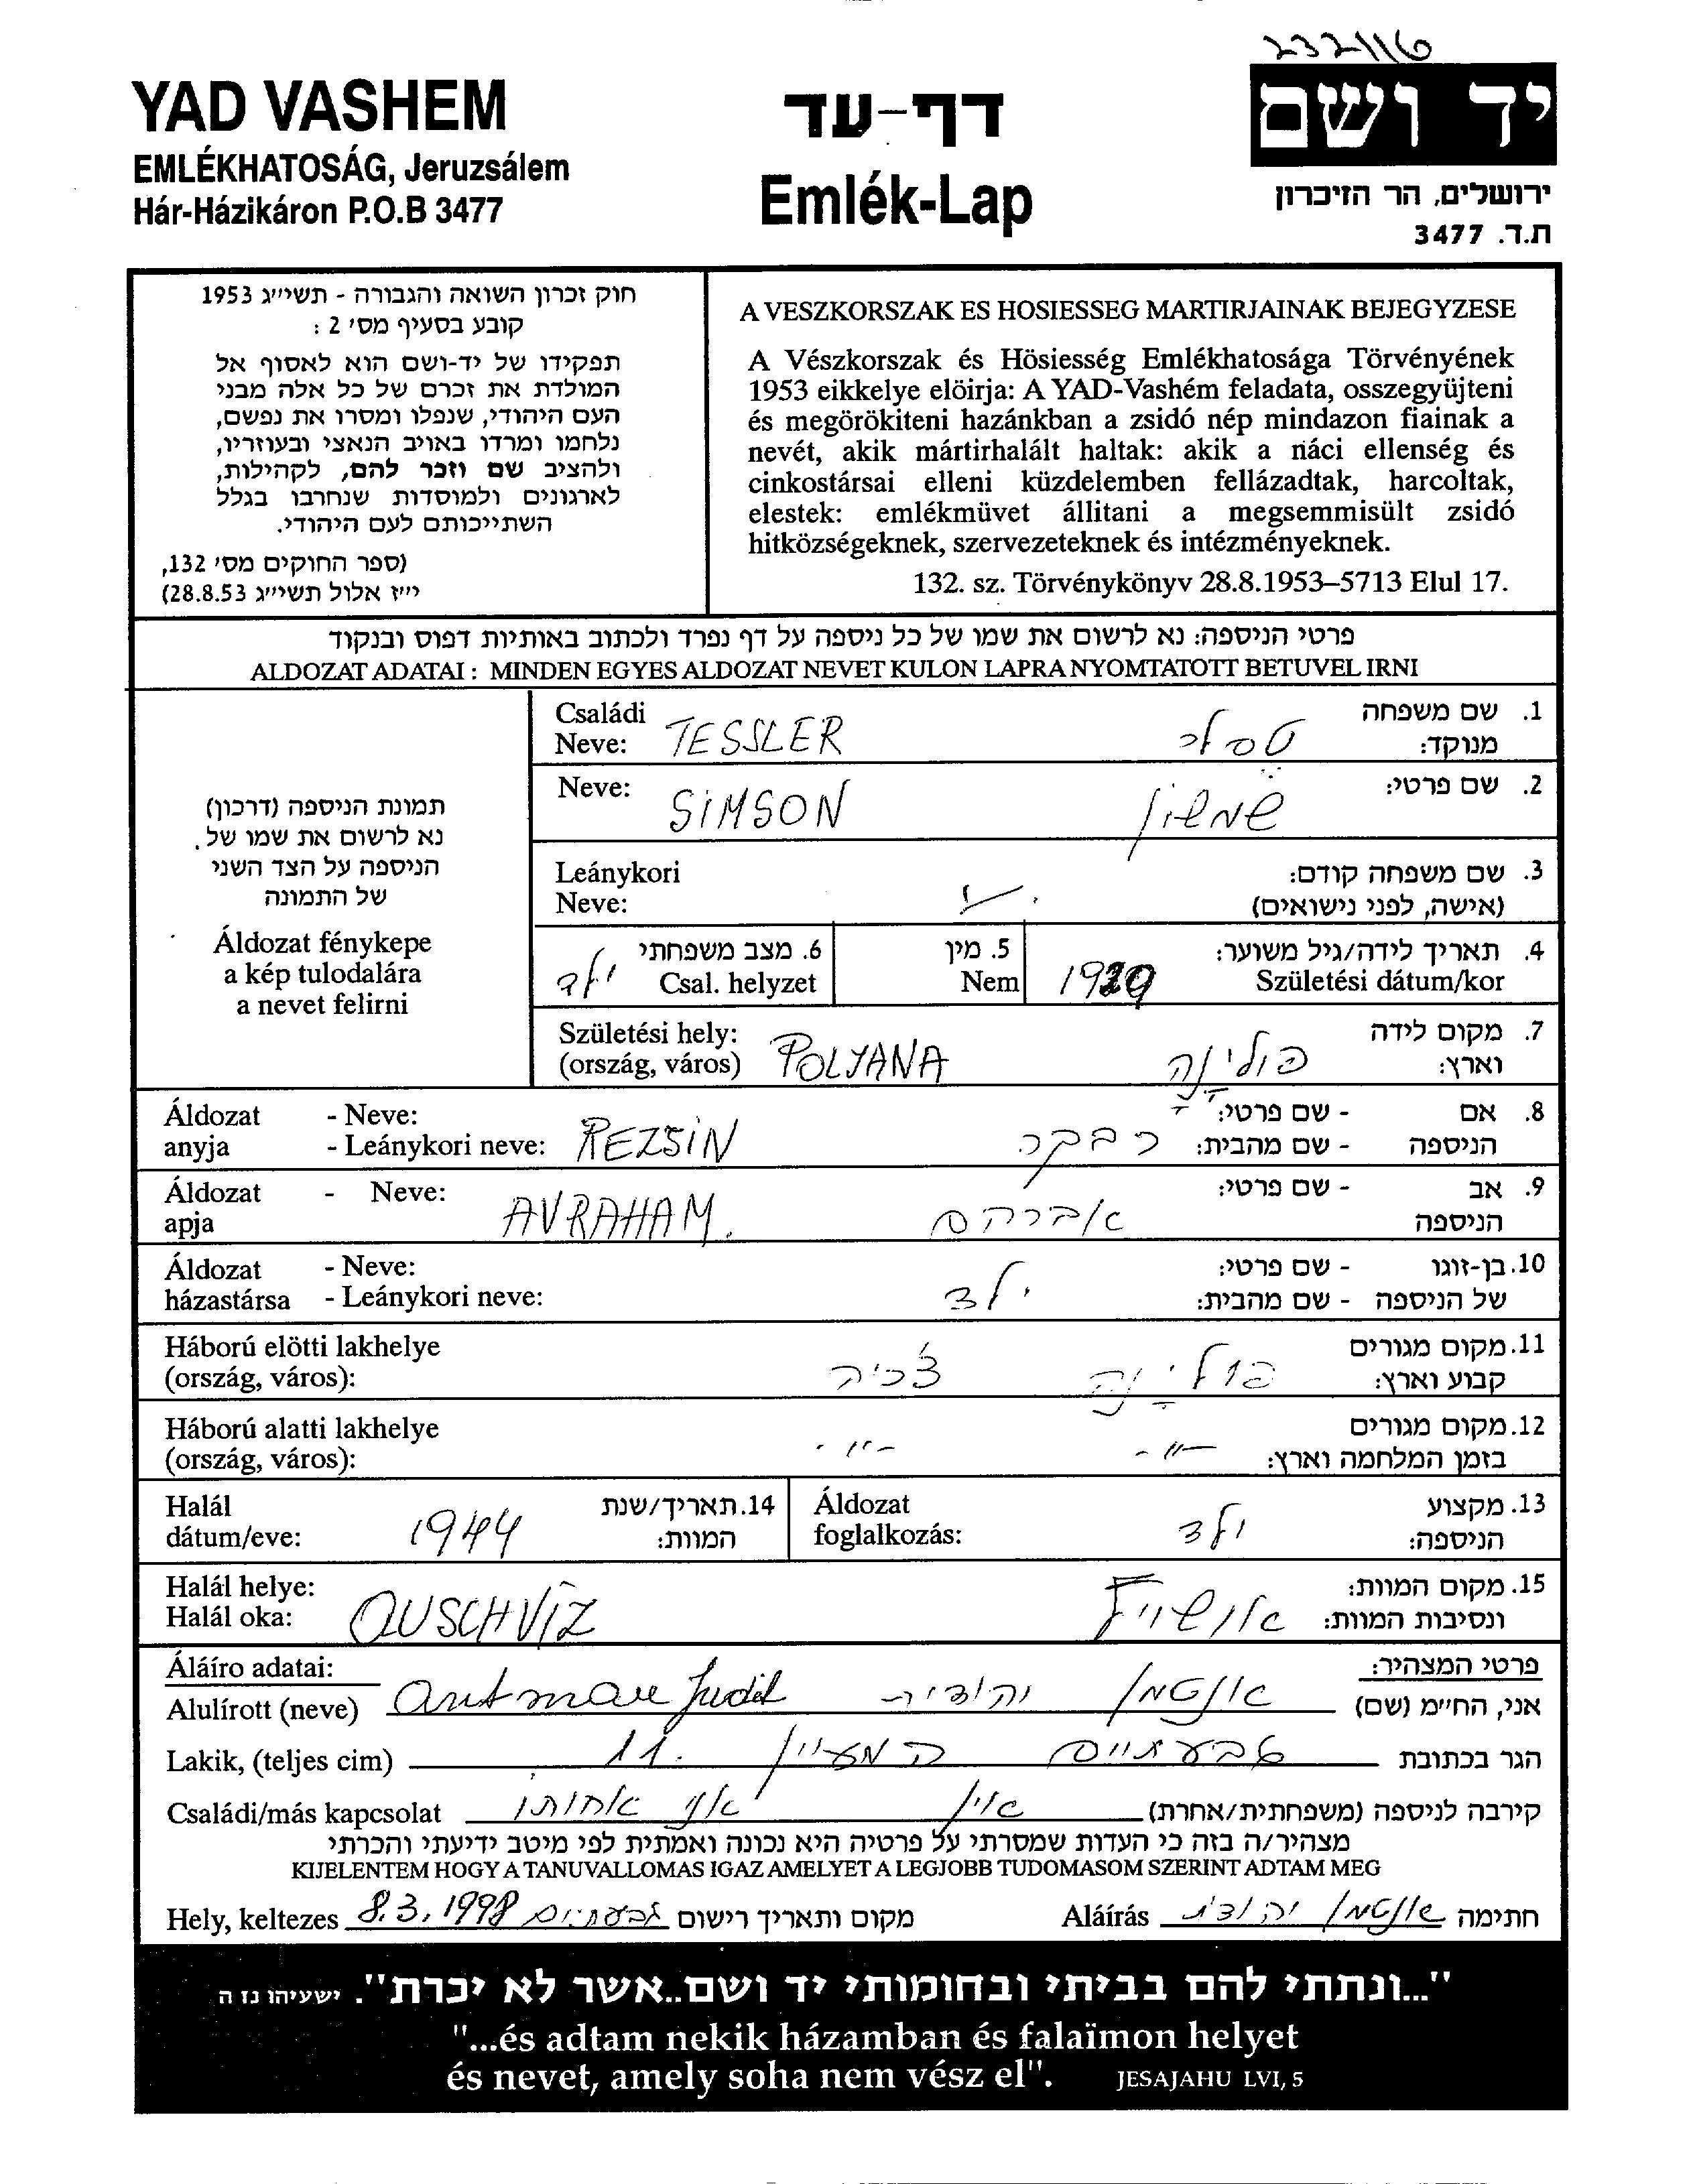 232116
YAD VASHEM
EMLÉKHATOSÁG, Jeruzsálem
Hár-Házikáron P.O.B 3477
דף-עד
Emlék-Lap
יד ושם
ירושלים, הר הזיכרון
ת.ד. 3477
חוק זכרון השואה והגבורה - תשי״ג 1953
קובע בסעיף מס׳ 2 :
תפקידו של יד-ושם הוא לאסוף אל
המולדת את זכרם של כל אלה מבני
העם היהודי, שנפלו ומסרו את נפשם,
נלחמו ומרדו באויב הנאצי ובעוזריו,
ולהציב שם וזכר להם, לקהילות,
לארגונים ולמוסדות שנחרבו בגלל
השתייכותם לעם היהודי.
(ספר החוקים מס׳ 132,
י״ז אלול תשי״ג 28.8.53)
A VESZKORSZAK ES HOSIESSEG MARTIRJAINAK BEJEGYZESE
A Vészkorszak és Hösiesség Emlékhatosága Törvényének
1953 eikkelye elöirja: A YAD-Vashém feladata, osszegyüjteni
és megörökiteni hazánkban a zsidó nép mindazon fiainak a
nevét, akik mártirhalált haltak: akik a náci ellenség és
cinkostársai elleni küzdelemben fellázadtak, harcoltak,
elestek: emlékmüvet állitani a megsemmisült zsidó
hitközségeknek, szervezeteknek és intézményeknek.
132. sz. Törvénykönyv 28.8.1953–5713 Elul 17.
פרטי הניספה: נא לרשום את שמו של כל ניספה על דף נפרד ולכתוב באותיות דפוס ובנקוד
ALDOZAT ADATAI : MINDEN EGYES ALDOZAT NEVET KULON LAPRA NYOMTATOTT BETUVEL IRNI
תמונת הניספה (דרכון)
נא לרשום את שמו של
הניספה על הצד השני
של התמונה
Áldozat fénykepe
a kép tulodalára
a nevet felirni
Családi
Neve: TESSLER טסלר
1. שם משפחה
מנוקד:
Neve: SIMSON שמשון 2. שם פרטי:
Leánykori
Neve:
3. שם משפחה קודם:
(אישה, לפני נישואים)
4. תאריך לידה/גיל משוער:
Születési dátum/kor 1929
5. מין
Nem
6. מצב משפחתי
Csal. helyzet ילד
Születési hely:
(ország, város) POLJANA פולינה
7. מקום לידה
וארץ:
Áldozat - Neve:
anyja - Leánykori neve: REZSIN רבקה
8. אם - שם פרטי:
הניספה - שם מהבית:
Áldozat - Neve:
apja AVRAHAM. אברהם
9. אב - שם פרטי:
הניספה
Áldozat - Neve:
házastársa - Leánykori neve: ילד
10. בן-זוגו - שם פרטי:
של הניספה - שם מהבית:
Háború elötti lakhelye
(ország, város): פולינה צכיה
11. מקום מגורים
קבוע וארץ:
Háború alatti lakhelye
(ország, város): -״- -״-
12. מקום מגורים
בזמן המלחמה וארץ:
Halál
dátum/eve: 1944
14. תאריך/שנת
המוות:
Áldozat
foglalkozás: ילד
13. מקצוע
הניספה:
Halál helye:
Halál oka: AUSCHVIZ אושויץ
15. מקום המוות:
ונסיבות המוות:
Áláíro adatai: פרטי המצהיר:
Alulírott (neve) Antman Judit אנטמן יהודית אני, החי״מ (שם)
Lakik, (teljes cim) גבעתיים המעיין 11. הגר בכתובת
Családi/más kapcsolat אני אחותו קירבה לניספה (משפחתית/אחרת)
מצהיר/ה בזה כי העדות שמסרתי על פרטיה היא נכונה ואמתית לפי מיטב ידיעתי והכרתי
KIJELENTEM HOGY A TANUVALLOMAS IGAZ AMELYET A LEGJOBB TUDOMASOM SZERINT ADTAM MEG
Hely, keltezes 8.3.1998 גבעתיים מקום ותאריך רישום Aláírás אנטמן יהודית חתימה
"...ונתתי להם בביתי ובחומותי יד ושם..אשר לא יכרת". ישעיהו נז ה
"...és adtam nekik házamban és falaïmon helyet
és nevet, amely soha nem vész el". JESAJAHU LVI, 5